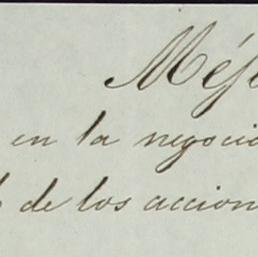 Méj
en la negocia
de los accion